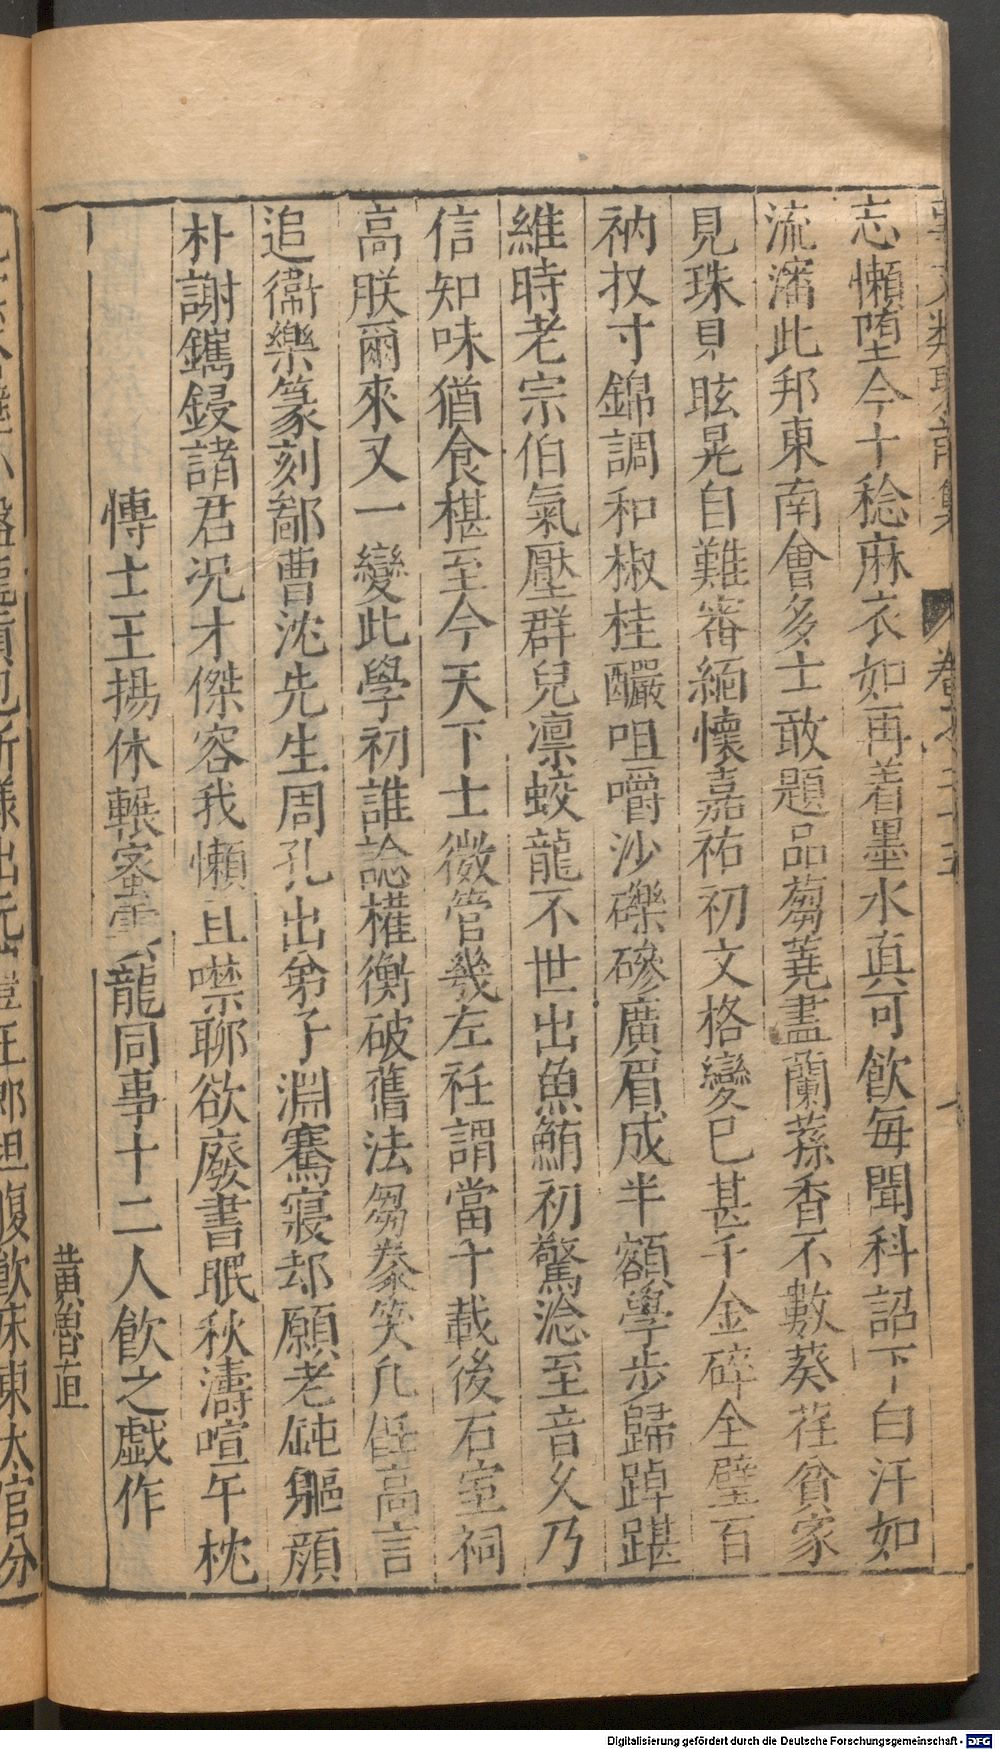 忘懶墮今十稔麻衣如再着墨水真可飲每聞科詔下白汗如
流瀋此邦東南會多士敢題品蒭蕘盡蘭蓀香不數葵荏貧家
見珠貝眩晃自難審緬懷嘉祐初文格變已甚千金碎全璧百
衲扠寸錦調和椒桂釅咀嚼沙礫磣廣眉成半額學步歸踔踸
維時老宗伯氣壓群兒凛蛟龍不世出魚鮪初驚淰至音久乃
信知味猶食椹至今天下士微管幾左衽謂當千載後石室祠
高朕爾來又一變此學初誰諗權衡破舊法芻豢笑凡飪高言
追衞樂篆刻鄙曹沈先生周孔出弟子淵騫寢却願老鈍軀顔
朴謝鐫鋟諸君况才傑容我懶且噤聊欲廢書眠秋濤喧午枕
博士王揚休輾密雲龍同事十二人飲之戯作
黄魯直
Digitalisierung gefördert durch die Deutsche Forschungsgemeinschaft - DFG